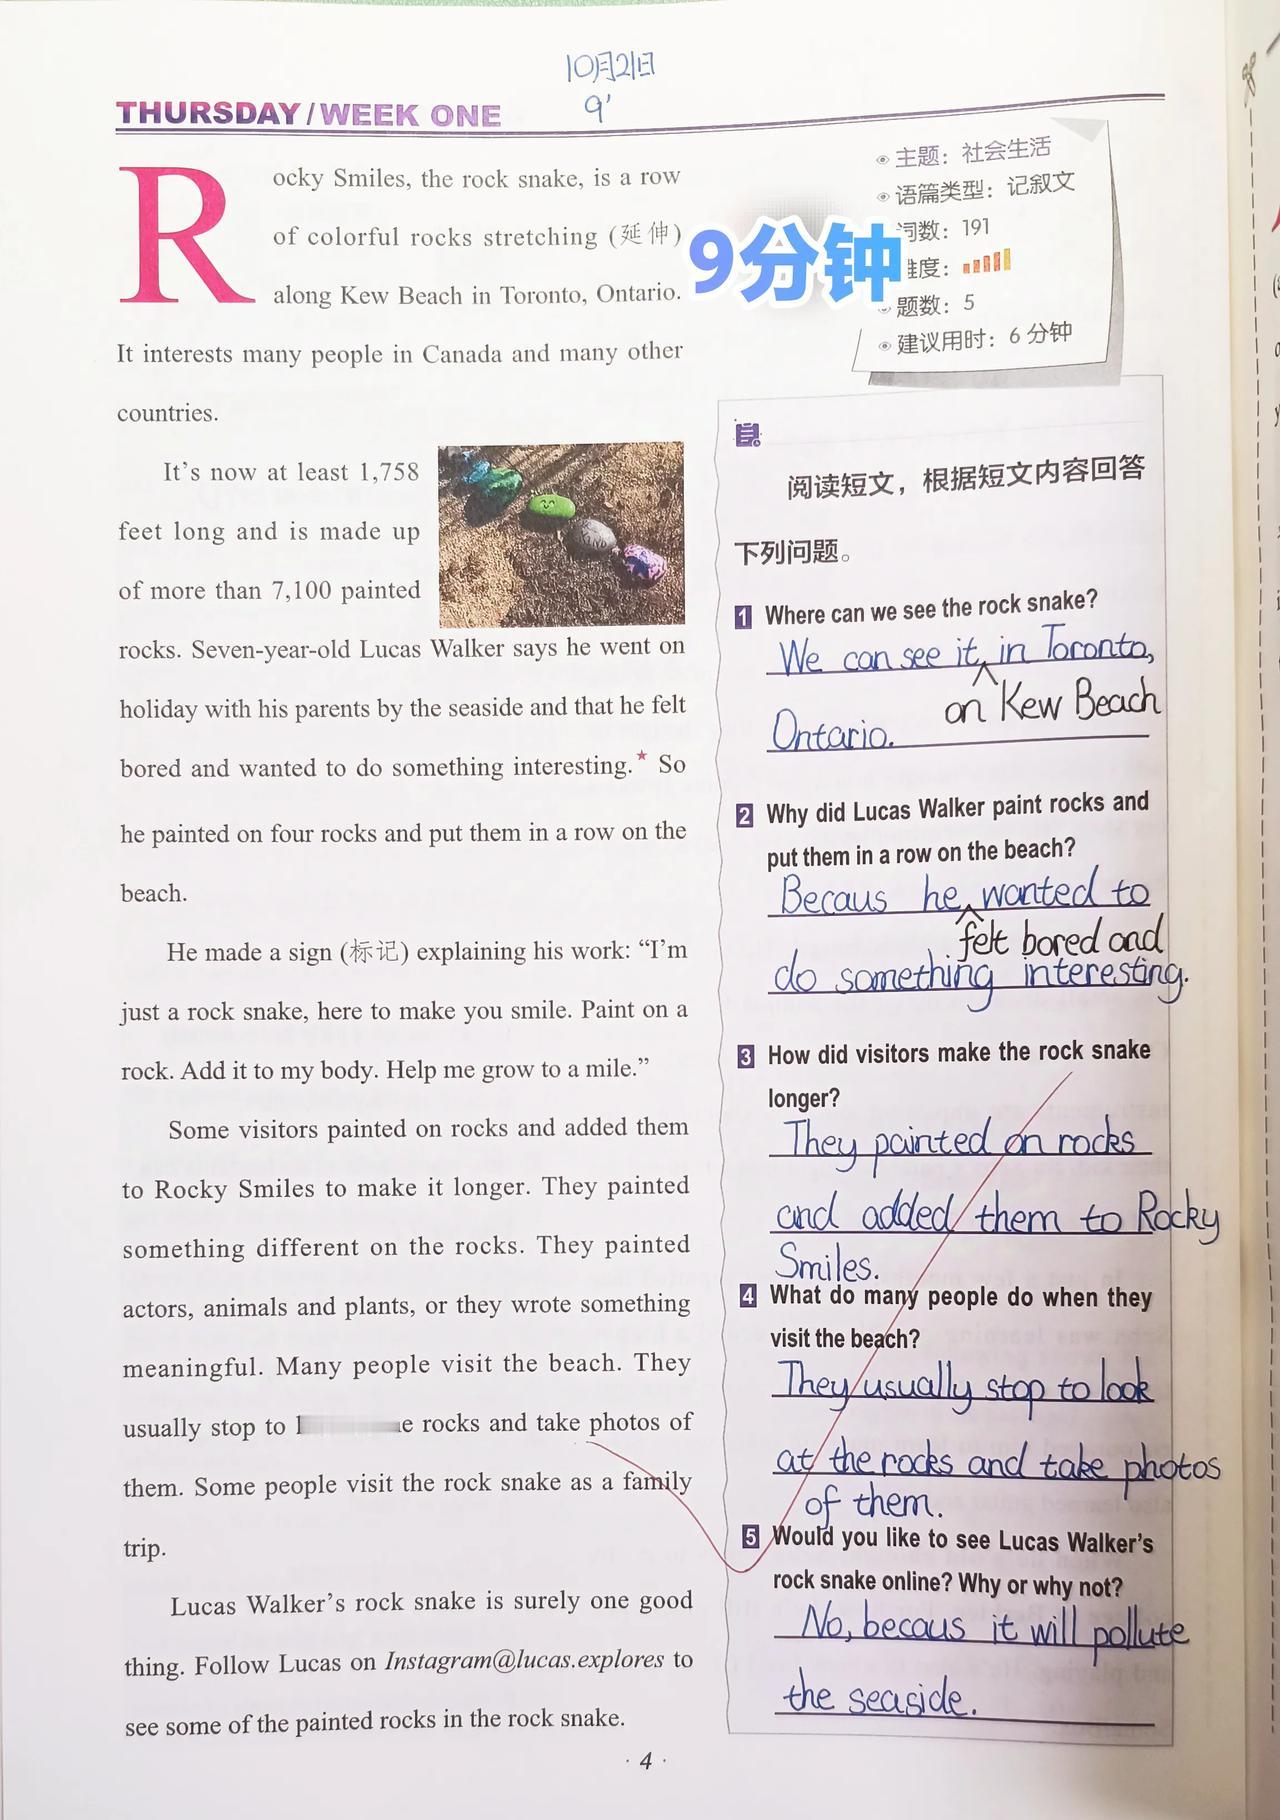 10月21日
9'
THURSDAY/WEEK ONE
Rocky Smiles, the rock snake, is a row
of colorful rocks stretching (延伸)
along Kew Beach in Toronto, Ontario.
It interests many people in Canada and many other
countries.
It's now at least 1,758
feet long and is made up
of more than 7,100 painted
rocks. Seven-year-old Lucas Walker says he went on
holiday with his parents by the seaside and that he felt
bored and wanted to do something interesting.* So
he painted on four rocks and put them in a row on the
beach.
He made a sign (标记) explaining his work: “I'm
just a rock snake, here to make you smile. Paint on a
rock. Add it to my body. Help me grow to a mile.”
Some visitors painted on rocks and added them
to Rocky Smiles to make it longer. They painted
something different on the rocks. They painted
actors, animals and plants, or they wrote something
meaningful. Many people visit the beach. They
usually stop to rocks and take photos of
them. Some people visit the rock snake as a family
trip.
Lucas Walker's rock snake is surely one good
thing. Follow Lucas on Instagram@lucas.explores to
see some of the painted rocks in the rock snake.
9分钟
主题：社会生活
语篇类型：记叙文
词数：191
难度：
题数：5
建议用时：6 分钟
阅读短文，根据短文内容回答
下列问题。
1 Where can we see the rock snake?
We can see it in Toronto,
on Kew Beach
Ontario.
2 Why did Lucas Walker paint rocks and
put them in a row on the beach?
Becaus he wanted to
felt bored and
do something interesting.
3 How did visitors make the rock snake
longer?
They painted on rocks
and added them to Rocky
Smiles.
4 What do many people do when they
visit the beach?
They usually stop to look
at the rocks and take photos
of them.
5 Would you like to see Lucas Walker's
rock snake online? Why or why not?
No, becaus it will pollute
the seaside.
· 4 ·